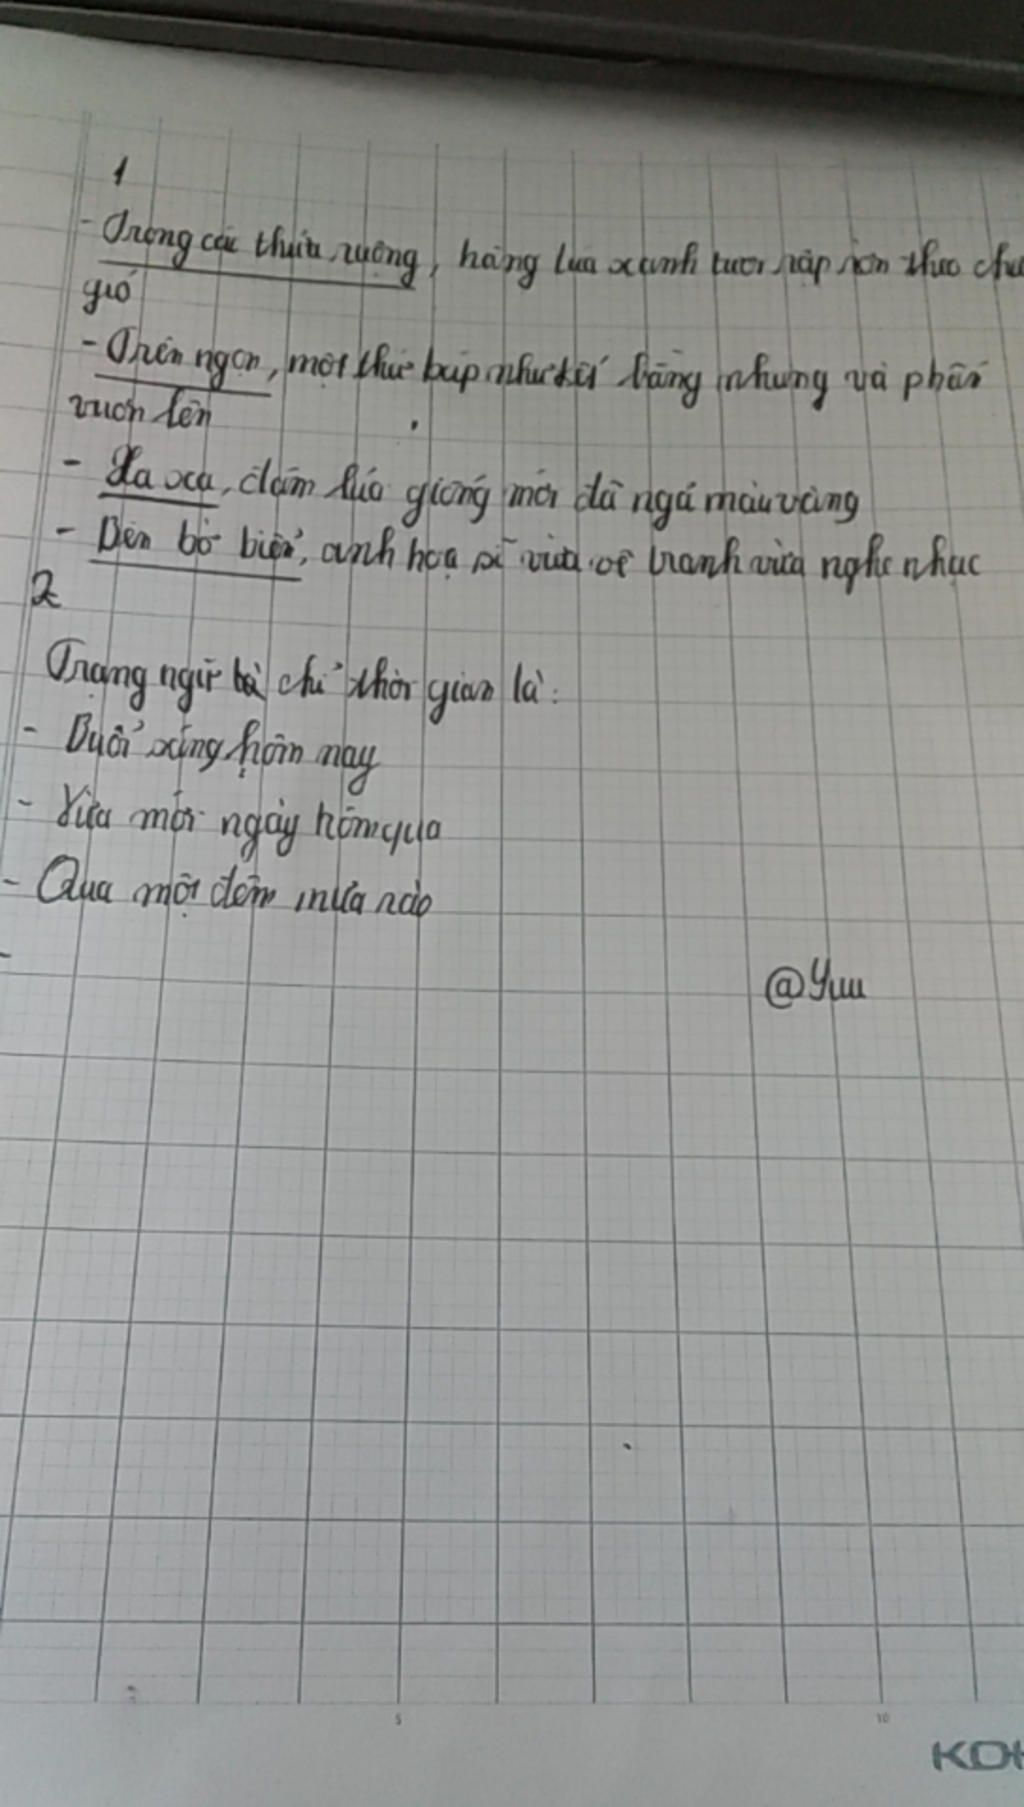 1
- Trong các thửa ruộng, hàng lúa xanh tươi rập rờn theo
gió
- Trên ngọn, một thứ búp như kết bằng nhung và phấn
vươn lên
- Xa xa, đám lúa giống mới đã ngả màu vàng
- Bên bờ biển, anh hoạ sĩ vừa vẽ tranh vừa nghe nhạc
2
Trạng ngữ chỉ thời gian là:
- Buổi sáng hôm nay
- Vừa mới ngày hôm qua
- Qua một đêm mưa rào
-
@Yuu
5 10